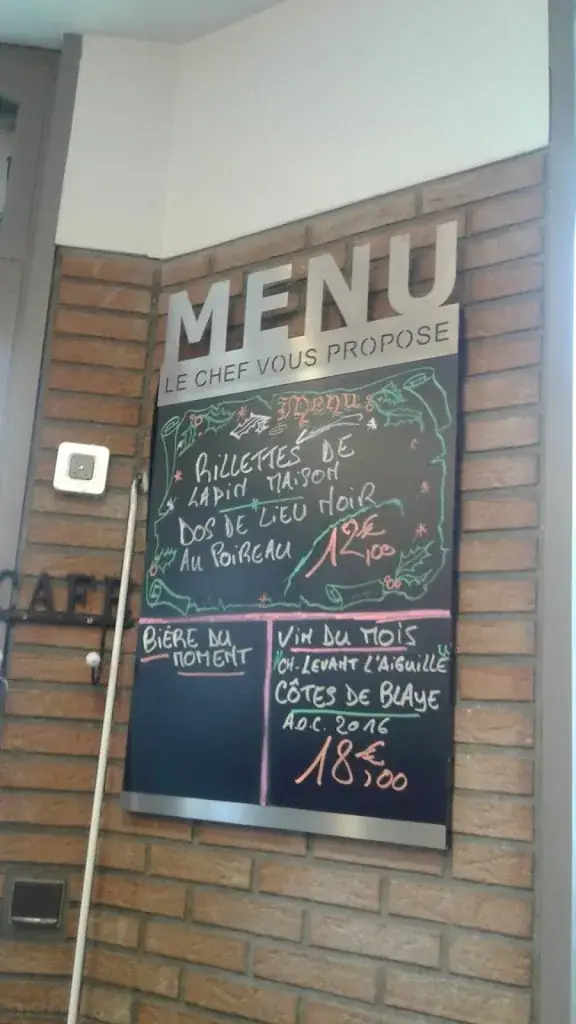 MENU
LE CHEF VOUS PROPOSE
Menu
RILLETTES DE
LAPIN MAISON
DOS DE LIEU NOIR
AU POIREAU
12€,00
BIÈRE DU
MOMENT
VIN DU MOIS
"CH. LEVANT L'AIGUILLE"
CÔTES DE BLAYE
A.O.C. 2016
18€,00
CAFE